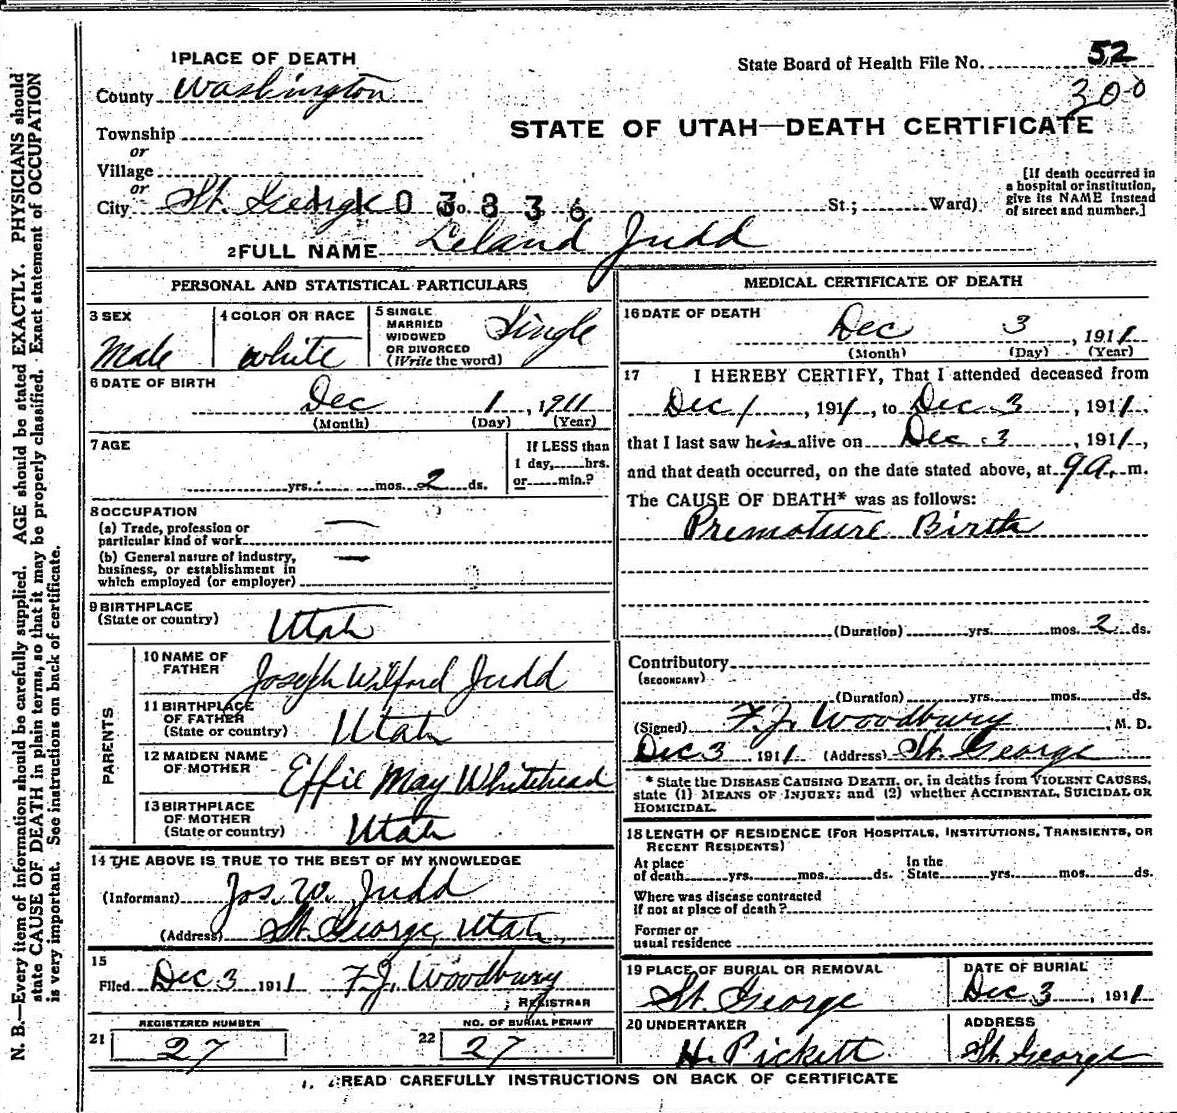 1 PLACE OF DEATH
State Board of Health File No. 52
300
County Washington
STATE OF UTAH—DEATH CERTIFICATE
Township
or
Village
or
City St. George No. St.; Ward)
0 3 8 3 6
[If death occurred in
a hospital or institution,
give its NAME instead
of street and number.]
2 FULL NAME Leland Judd
PERSONAL AND STATISTICAL PARTICULARS
3 SEX
Male
4 COLOR OR RACE
white
5 SINGLE
MARRIED
WIDOWED
OR DIVORCED
(Write the word)
Single
6 DATE OF BIRTH
Dec 1, 1911
(Month) (Day) (Year)
7 AGE
yrs. mos. 2 ds.
If LESS than
1 day, hrs.
or min.?
8 OCCUPATION
(a) Trade, profession or
particular kind of work —
(b) General nature of industry,
business, or establishment in
which employed (or employer) —
9 BIRTHPLACE
(State or country) Utah
PARENTS
10 NAME OF
FATHER Joseph Wilford Judd
11 BIRTHPLACE
OF FATHER
(State or country) Utah
12 MAIDEN NAME
OF MOTHER Effie May Whitehead
13 BIRTHPLACE
OF MOTHER
(State or country) Utah
14 THE ABOVE IS TRUE TO THE BEST OF MY KNOWLEDGE
(Informant) Jos. W. Judd
(Address) St. George, Utah.
15
Filed Dec 3 1911 F. J. Woodbury
REGISTRAR
REGISTERED NUMBER
21 27
NO. OF BURIAL PERMIT
22 27
MEDICAL CERTIFICATE OF DEATH
16 DATE OF DEATH
Dec 3, 1911
(Month) (Day) (Year)
17 I HEREBY CERTIFY, That I attended deceased from
Dec 1, 1911, to Dec 3, 1911.
that I last saw him alive on Dec 3, 1911,
and that death occurred, on the date stated above, at 9 a. m.
The CAUSE OF DEATH* was as follows:
Premature Birth
(Duration) yrs. mos. 2 ds.
Contributory
(SECONDARY)
(Duration) yrs. mos. ds.
(Signed) F. J. Woodbury, M. D.
Dec 3 1911 (Address) St. George
* State the DISEASE CAUSING DEATH, or, in deaths from VIOLENT CAUSES,
state (1) MEANS OF INJURY; and (2) whether ACCIDENTAL, SUICIDAL OR
HOMICIDAL.
18 LENGTH OF RESIDENCE (FOR HOSPITALS, INSTITUTIONS, TRANSIENTS, OR
RECENT RESIDENTS)
At place
of death yrs. mos. ds.
In the
State yrs. mos. ds.
Where was disease contracted
if not at place of death?
Former or
usual residence
19 PLACE OF BURIAL OR REMOVAL
St. George
DATE OF BURIAL
Dec 3, 1911
20 UNDERTAKER
H. Pickett
ADDRESS
St. George
READ CAREFULLY INSTRUCTIONS ON BACK OF CERTIFICATE
N. B.—Every item of information should be carefully supplied. AGE should be stated EXACTLY. PHYSICIANS should
state CAUSE OF DEATH in plain terms, so that it may be properly classified. Exact statement of OCCUPATION
is very important. See instructions on back of certificate.